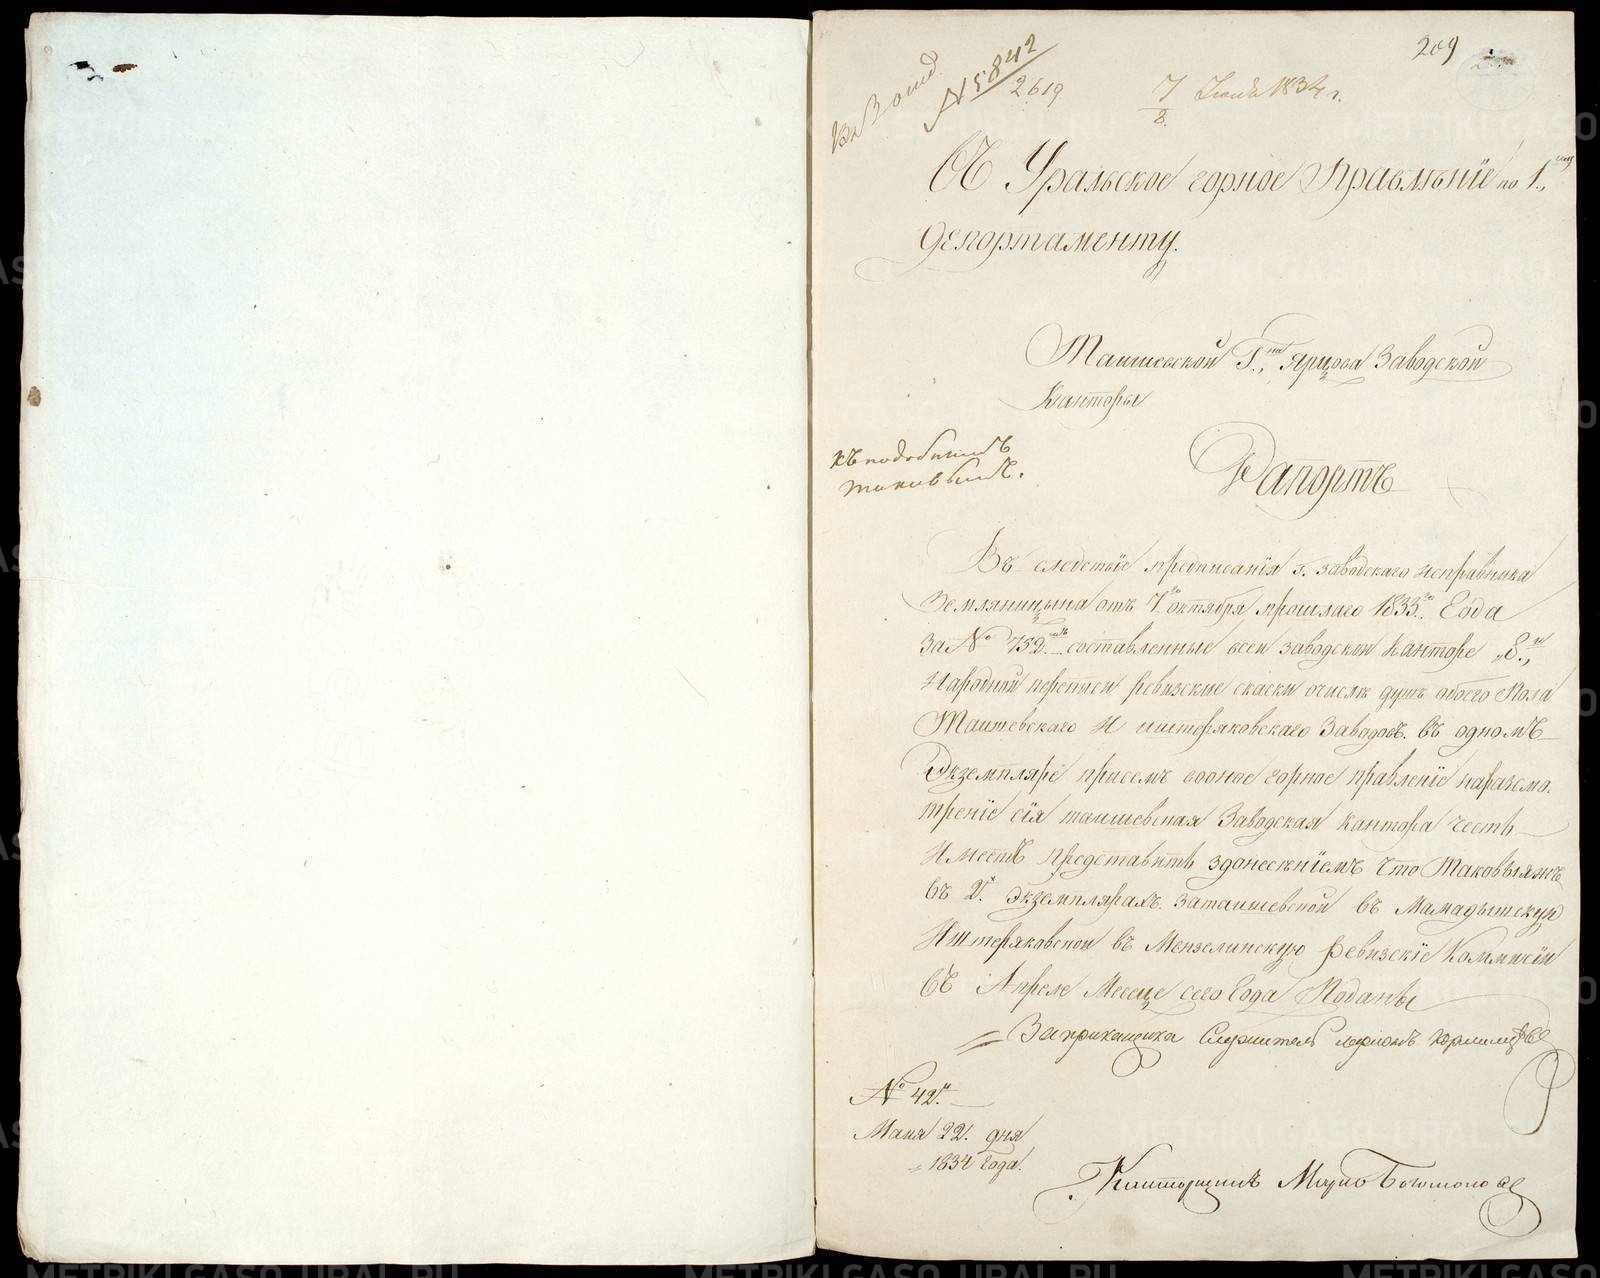 209
№ 5842
2619
7 Июня 1834 г.
8.
Въ Уральское горное Правлѣніе по 1.му
департаменту.
Таишевской Г.на Ярцова Заводской
Канторы
къ подобнымъ
таковымъ.
Рапортъ
Въ следствіе предписанія г. заводскаго исправника
Земляницына отъ 7.го октября прошлаго 1833.го Года
За № 752.мъ составленные всей заводской Канторе „8.й
Народной переписи ревизские скаски очисле душъ обоего Пола
Таишевскаго И иштеряковскаго Заводовъ. въ одномъ
Экземпляре присемъ вооное горное правленіе наразсмо.
треніе сія таишевская Заводская кантора честь
Имеетъ представить здонесеніемъ Что Таковыяжъ
въ 2.х экземплярахъ. затаишевской въ Мамадышскую
Иштеряковской въ Мензелинскую ревизскіе Коммисіи
въ Апреле Месеце сего Года Поданы
За прикащика Служитель
№ 42.й
Маия 22. дня
1834 Года.
Канторщикъ Богомоловъ
METRIKI.GASO-URAL.RU